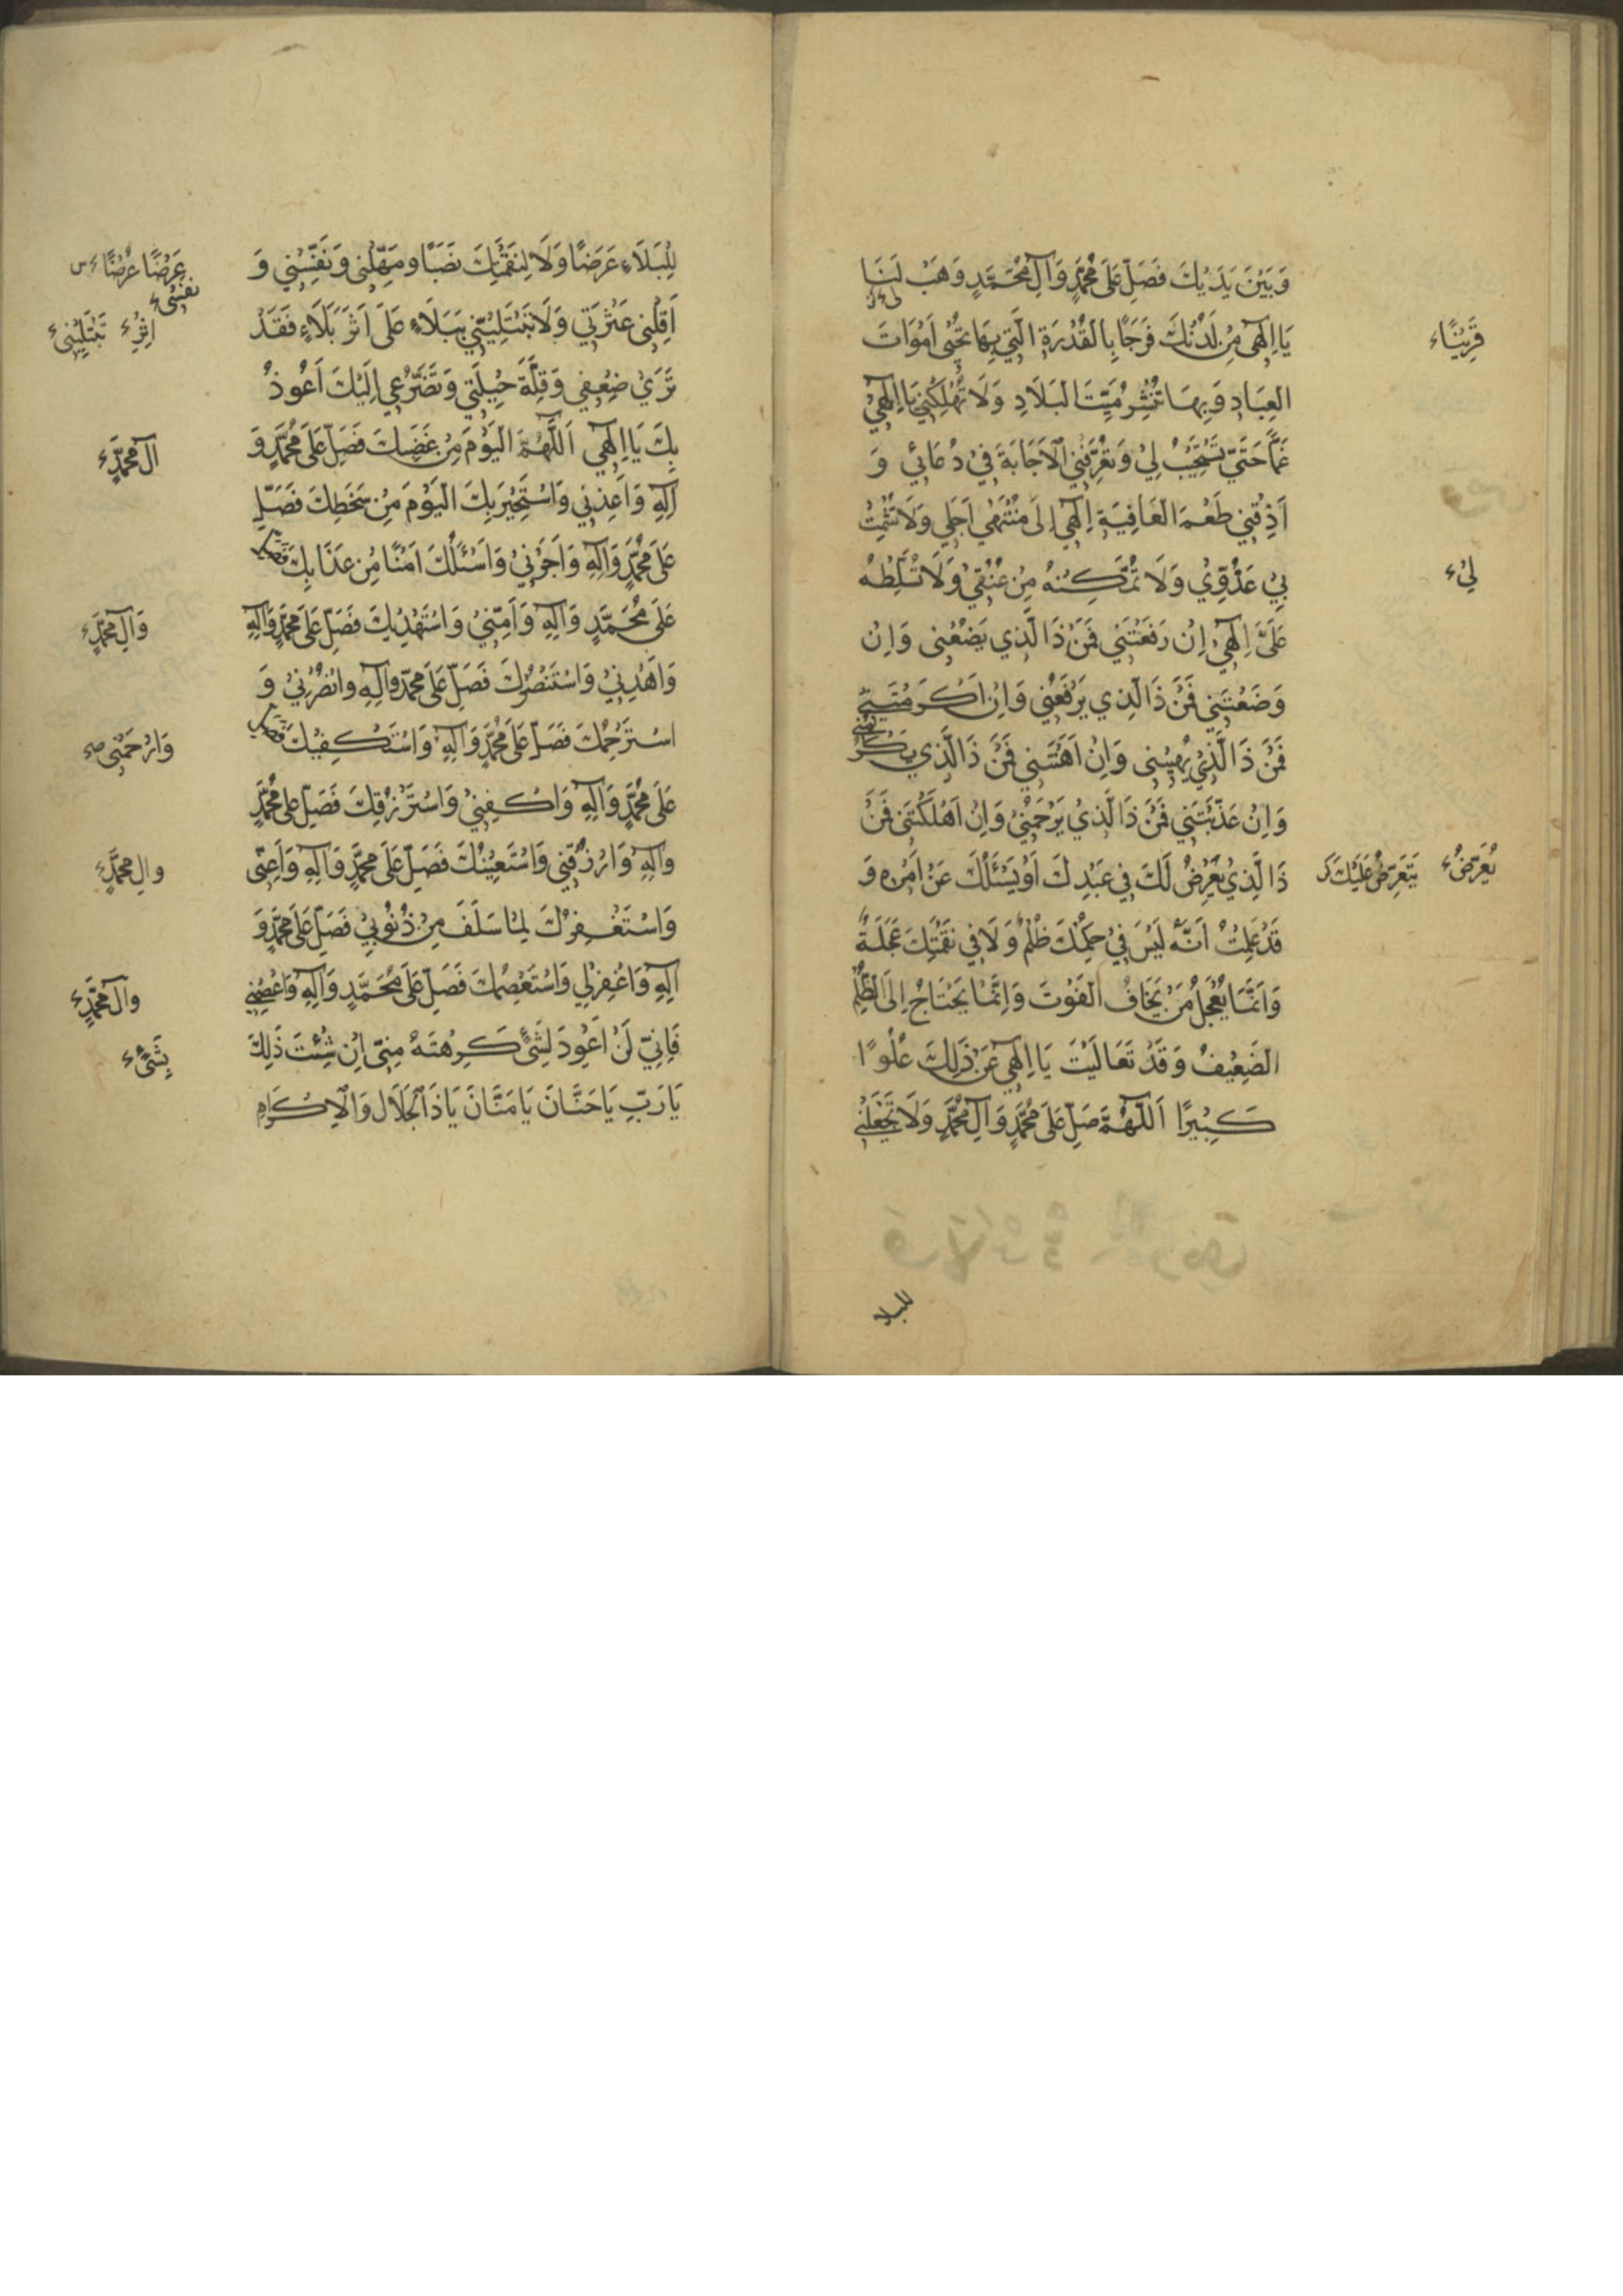 وَبَيْنَ يَدَيْكَ فَصَلِّ عَلَى مُحَمَّدٍ وَآلِ مُحَمَّدٍ وَهَبْ لَنَا
لي
يَا اِلٰهي مِنْ لَدُنْكَ فَرَجًا بِالْقُدْرَةِ الَّتي بِهَا تُحْيي اَمْوَاتَ
قَرِيبًا
الْعِبَادِ وَبِهَا تَنْشُرُ مَيِّتَ الْبَلَادِ وَلَا تُهْلِكْنِي يَا اِلٰهي
غَمًّا حَتّي تَسْتَجِيبَ لِي وَتُعَرِّفَنِي الْاَجَابَةَ فِي دُعَائي وَ
اَذِقْنِي طَعْمَ الْعَافِيَةِ اِلٰهي اِلَى مُنْتَهٰي اَجَلِي وَلَا تُشْمِتْ
بِي عَدُوِّي وَلَا تُمَكِّنْهُ مِنْ عُنُقِي وَلَا تُسَلِّطْهُ
لِيْ
عَلَيَّ اِلٰهي اِنْ رَفَعْتَنِي فَمَنْ ذَا الَّذِي يَضَعُنِي وَاِنْ
وَضَعْتَنِي فَمَنْ ذَا الَّذِي يَرْفَعُنِي وَاِنْ اَكْرَمْتَنِي
فَمَنْ ذَا الَّذِي يُهِينُنِي وَاِنْ اَهَنْتَنِي فَمَنْ ذَا الَّذِي يُكْرِمُنِي
وَاِنْ عَذَّبْتَنِي فَمَنْ ذَا الَّذِي يَرْحَمُنِي وَاِنْ اَهْلَكْتَنِي فَمَنْ
ذَا الَّذِي يَعْرِضُ لَكَ فِي عَبْدِكَ اَوْ يَسْئَلُكَ عَنْ اَمْرِهِ وَ
يُعَرِّضُ يَتَعَرَّضُ عَلَيْكَ
قَدْ عَلِمْتُ اَنَّهُ لَيْسَ فِي حُكْمِكَ ظُلْمٌ وَلَا فِي نَقِمَتِكَ عَجَلَةٌ
وَاِنَّمَا يَعْجَلُ مَنْ يَخَافُ الْفَوْتَ وَاِنَّمَا يَحْتَاجُ اِلَى الظُّلْمِ
الضَّعِيفُ وَقَدْ تَعَالَيْتَ يَا اِلٰهي عَنْ ذَلِكَ عُلُوًّا
كَبِيْرًا اَللّٰهُمَّ صَلِّ عَلَى مُحَمَّدٍ وَآلِ مُحَمَّدٍ وَلَا تَجْعَلْنِي
للبلا
لِلْبَلَاءِ غَرَضًا وَلَا لِنَقِمَتِكَ نَصَبًا وَمَهِّلْنِي وَنَفِّسْنِي وَ
عَرَضًا عُرْضًا
نفسي
اَقِلْنِي عَثْرَتِي وَلَا تَبْتَلِيَنِّي بِبَلَاءٍ عَلَى اَثَرِ بَلَاءٍ فَقَدْ
اِثْرِ تَبْتَلِيْنِي
تَرَي ضَعْفِي وَقِلَّةَ حِيْلَتِي وَتَضَرُّعِي اِلَيْكَ اَعُوذُ
بِكَ يَا اِلٰهي اَللّٰهُمَّ الْيَوْمَ مِنْ غَضَبِكَ فَصَلِّ عَلَى مُحَمَّدٍ وَ
آلِ مُحَمَّدٍ
آلِهِ وَاَعِذْنِي وَاَسْتَجِيْرُ بِكَ الْيَوْمَ مِنْ سَخَطِكَ فَصَلِّ
عَلَى مُحَمَّدٍ وَآلِهِ وَاَجِرْنِي وَاَسْئَلُكَ اَمْنًا مِنْ عَذَابِكَ فَصَلِّ
عَلَى مُحَمَّدٍ وَآلِهِ وَآمِنِّي وَاَسْتَهْدِيْكَ فَصَلِّ عَلَى مُحَمَّدٍ وَآلِهِ
وَآلِ مُحَمَّدٍ
وَاهْدِنِي وَاَسْتَنْصِرُكَ فَصَلِّ عَلَى مُحَمَّدٍ وَآلِهِ وَانْصُرْنِي وَ
اَسْتَرْحِمُكَ فَصَلِّ عَلَى مُحَمَّدٍ وَآلِهِ وَاَسْتَكْفِيْكَ فَصَلِّ
وَارْحَمْنِي
عَلَى مُحَمَّدٍ وَآلِهِ وَاكْفِنِي وَاَسْتَرْزِقُكَ فَصَلِّ عَلَى مُحَمَّدٍ
وَآلِهِ وَارْزُقْنِي وَاَسْتَعِيْنُكَ فَصَلِّ عَلَى مُحَمَّدٍ وَآلِهِ وَاَعِنِّي
وَالِ مُحَمَّدٍ
وَاَسْتَغْفِرُكَ لِمَا سَلَفَ مِنْ ذُنُوبِي فَصَلِّ عَلَى مُحَمَّدٍ وَ
آلِهِ وَاغْفِرْلِي وَاَسْتَعْصِمُكَ فَصَلِّ عَلَى مُحَمَّدٍ وَآلِهِ وَاعْصِمْنِي
وَآلِ مُحَمَّدٍ
فَاِنِّي لَنْ اَعُوْدَ لِشَيْءٍ كَرِهْتَهُ مِنِّي اِنْ شِئْتَ ذَلِكَ
بِشَيْءٍ
يَا رَبِّ يَا حَنَّانَ يَا مَنَّانَ يَا ذَا الْجَلَالِ وَالْاِكْرَامِ